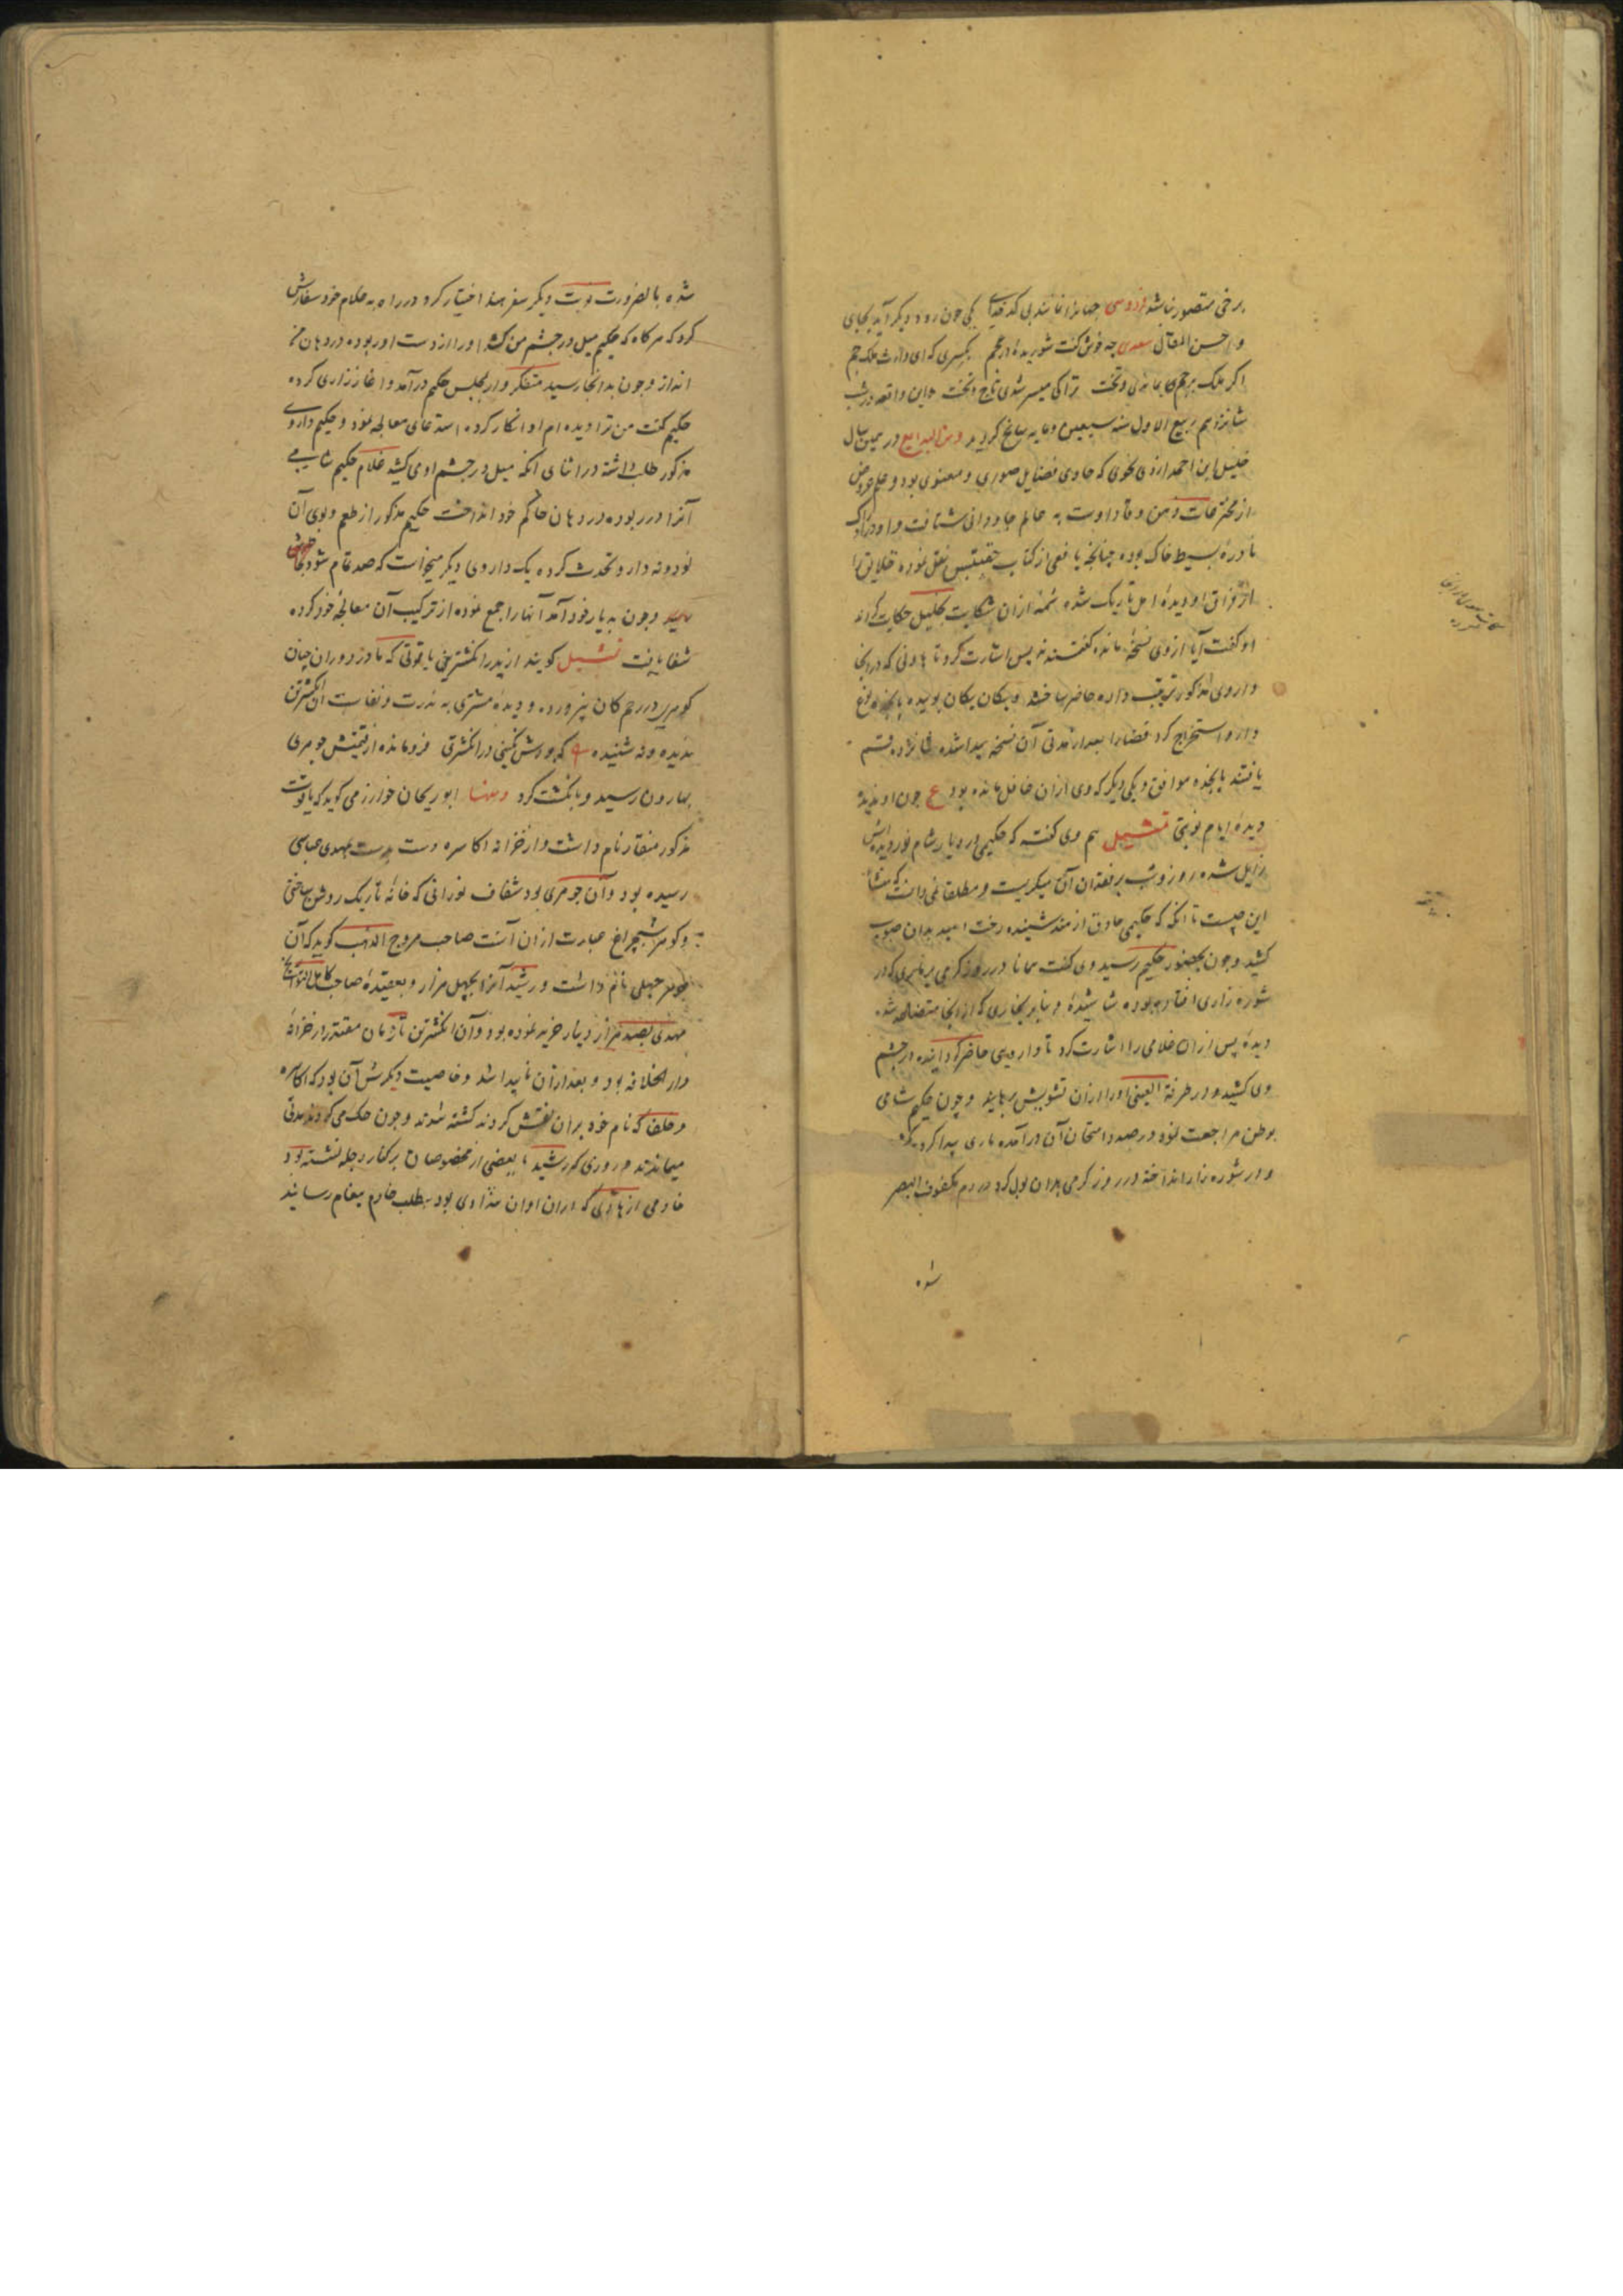 برخی متصور نباشد فردوسی جهانرا نمانند بی کدخدای یکی چون رود دیگر آید بجای
و احسن المقال سعدی چه خوش گفت شوریدهٔ در عجم بکسری که ای وارث ملک جم
اگر ملک بر جم بماندی و تخت ترا کی میسر شدی تاج و تخت و این واقعه در شب
شانزدهم ربیع الاول سنه سبعین و مایه سانح گردید و من البدایع در همین سال
خلیل ابن احمد ازدی نحوی که حاوی فضایل صوری و معنوی بود و علم عروض
از مخترعات ذهن وقاد اوست به عالم جاودانی شتافت و او در ادراک
نادرهٔ بسیط خاک بوده چنانچه یافعی از کتاب مقتبس نقل نموده خلایق را
از فراق او دیدهٔ امل تاریک شده شمهٔ ازان شکایت بخلیل حکایت کردند
او گفت آیا ازوی نسخهٔ مانده گفتند نه پس اشارت کرد تا هاونی که درانجا
داروی مذکور ترتیب داده حاضر ساختند و یکان یکان بوییده پانزده نوع
دارو استخراج کرد قضارا بعد از مدتی آن نسخه پیدا شده شانزده قسم
یافتند پانزده موافق و یکی دیگر که وی ازان غافل مانده بود ع چون او ندیده
دیدهٔ ایام نوبتی تمثیل هم وی گفته که حکیمی در دیار شام نور دیدهٔ اش
زایل شده روز و شب بر فقدان آن میگریست و مطلقا نمی دانست که منشأ
این چیست تا آنکه که حکیمی حاذق از هند شنیده رخت امید بدان صوب
کشید و چون بحضور حکیم رسید وی گفت همانا در روز گرمی بر ماری که در
شوره زاری افتاده بوده شاشیدهٔ و بنابر بخاری که ازانجا متصاعد شده
دیدهٔ پس ازان غلامی را اشارت کرد تا دارویی حاضر گردانیده در چشم
وی کشید و در طرفة العینی او را ازان تشویش رهانید و چون حکیم شامی
بوطن مراجعت نمود در صدد امتحان آن درآمده ماری پیدا کرد که
و در شوره زار انداخته در روز گرمی بدان بول کرد در دم مکفوف البصر
شده
شده بالضرورت نوبت دیگر سفر هند اختیار کرد و در راه به غلام خود سفارش
کرد که هرگاه که حکیم میل در چشم من کشد او را از دست او ربوده در دهان من
انداز و چون بدانجا رسید متفکر وار بمجلس حکیم درآمد و آغاز زاری کرده
حکیم گفت من ترا دیده ام او انکار کرده استدعای معالجه نمود و حکیم داروی
مذکور طلب داشته در اثنای آنکه میل در چشم اومی کشید غلام حکیم شامی
آنرا در ربوده در دهان حاکم خود انداخت حکیم مذکور از طعم و بوی آن
نود و نه دارو تحدث کرده یک داروی دیگر میخواست که صد تمام شود بخاطرش
نرسید و چون به دیار خود آمد آنها را جمع نموده از ترکیب آن معالجهٔ خود کرده
شفا یافت تمثیل گویند از پدر انگشترین یاقوتی که مادر دوران چنان
گوهری در رحم کان نپرورده و دیدهٔ مشتری به ندرت و نفاست آن انگشترین
ندیده و نه شنیده که بودش نگینی در انگشتری فرومانده از قیمتش جوهری
بهارون رسید و بانگشت کرد و منها ابو ریحان خوارزمی گوید که یاقوت
مذکور منقار نام داشت و از خزانه اکاسره دست بدست بمهدی عباسی
رسیده بود و آن جوهری بود شفاف نورانی که خانهٔ تاریک روشن ساختی
و گوهر شبچراغ عبارت ازان آنست صاحب مروج الذهب گوید که آن
جوهر جبلی نام داشت و رشید آنرا بچهل هزار و بعقیدهٔ صاحب کامل التواریخ
مهدی بصید هزار دینار خریده نموده بود و آن انگشترین تا زمان مقتدر از خزانهٔ
دار الخلافه بود و بعد ازان ناپیدا شد و خاصیت دیگرش آن بود که اکاسره
و خلفا که نام خود بران نقش کردند کشته شدند و چون حک می کردند مدتی
میماندند و روزی که رشید با بعضی از مخصوصان بر کنار دجله نشسته بود
خادمی از هادی که دران اوان هنداوی بود بطلب خاتم پیغام رسانید